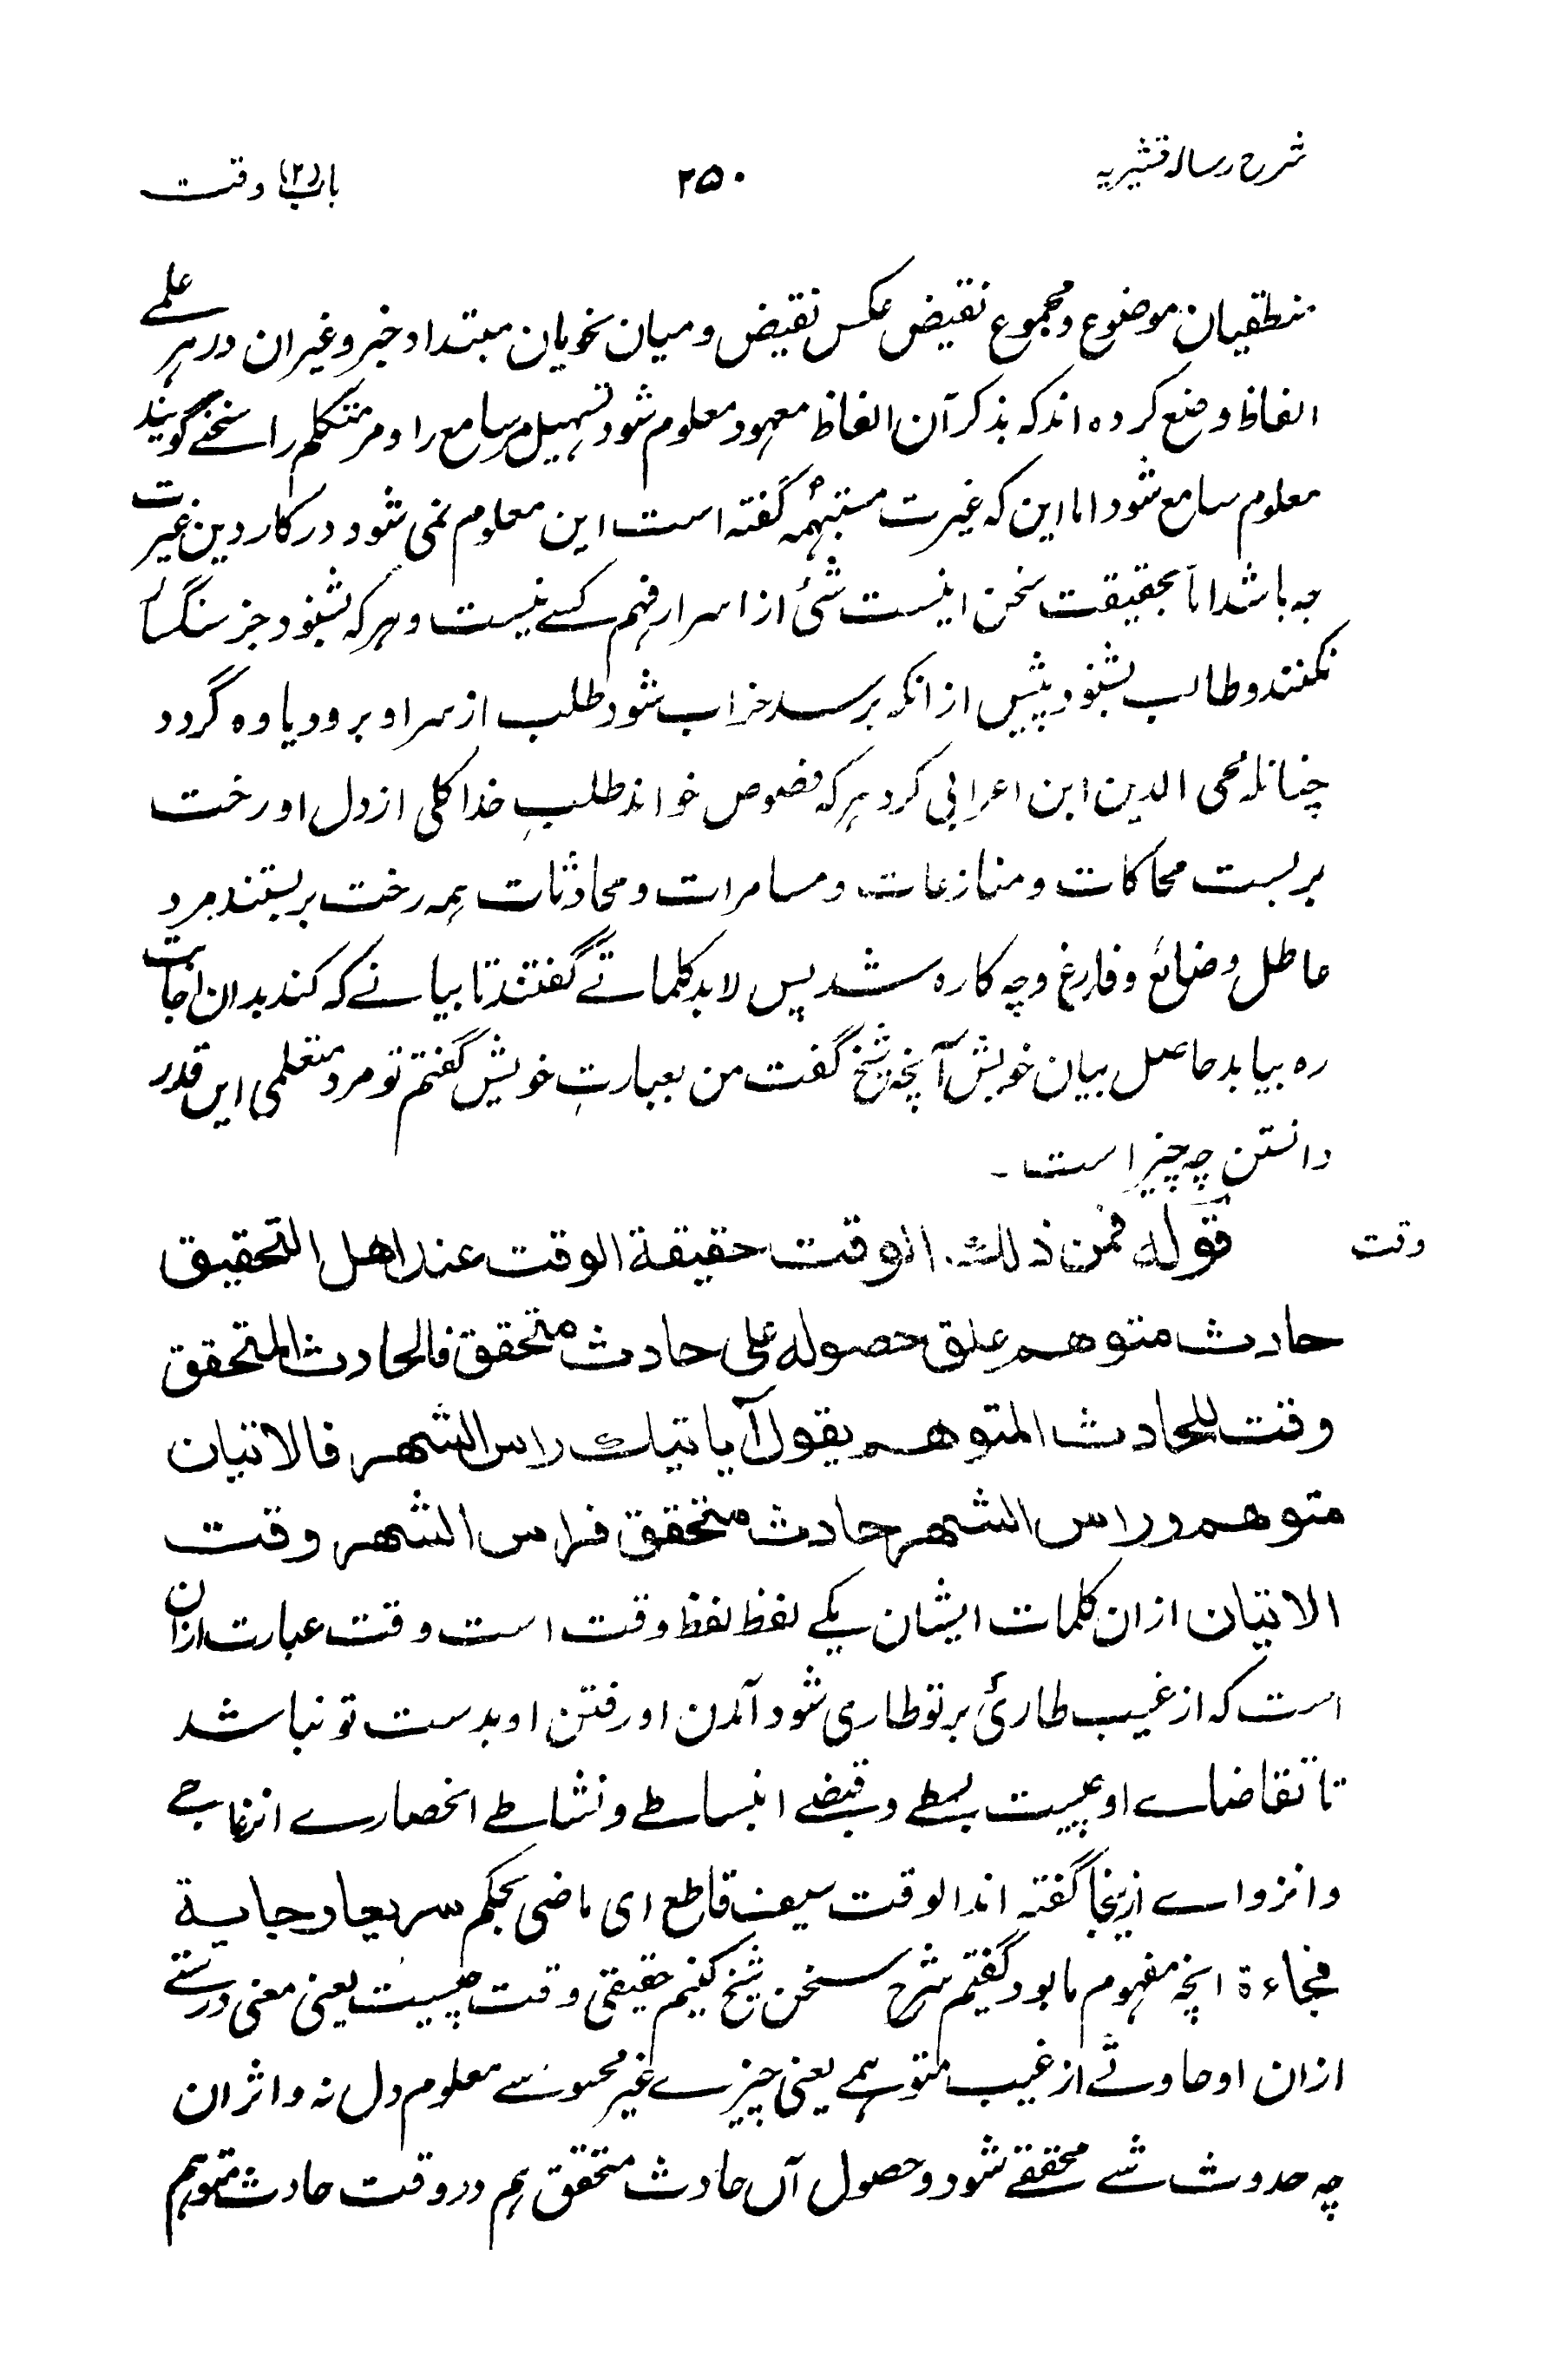 شرح رساله قشیریه ۲۵۰ باب (۲) وقت
منطقیان موضوع و مجموع نقیض عکس نقیض و میان نحویان مبتدا و خبر و غیران در هر علمے
الفاظ وضع کرده اند که بذکر آن الفاظ معهود معلوم شود تسهیل مر سامع را و مر متکلم را سخنے گویند
معلوم سامع شود اما این که غیرت گفته است این معلوم نمی شود در کار دین غیرت
چه باشد اما بحقیقت سخن اینست شئ از اسرار فهم کسے نیست و هر که بشنود جز سنگسار
نکنند و طالب بشنود پیش از انکه برسد خراب شود طلب از سر او برود یاوه گردد
چنانکه محی الدین ابن اعرابی کرد هر که فصوص خواند طلب خدا کلی از دل او رخت
بربست محاکات و منازعات و مسامرات و محادثات همه رخت بربستند مرد
عاطل و ضائع و فارغ و چه کاره شد پس لابد کلماتے گفتند تا بیانے که کند بدان
ره بیابد حاصل بیان خویش آنچه شیخ گفت من بعبارت خویش گفتم تو مرد متعلمی این قدر
دانستن چه چیز است -
وقت قوله فمن ذلك الوقت حقيقة الوقت عند اهل التحقيق
حادث متوهم علق حصوله على حادث متحقق فالحادث المتحقق
وقت للحادث المتوهم يقول آياتيك راس الشهر فالاتيان
متوهم وراس الشهر حادث متحقق فراس الشهر وقت
الاتيان ازان کلمات ایشان یکے لفظ لفظ وقت است وقت عبارت ازان
است که از غیب طارئ بر تو طاری شود آمدن اورفتن او بدست تو نباشد
تا تقاضاے او چیست بسطے و قبضے انبساطے و نشاطے انحصارے
و انزواے ازینجا گفته اند الوقت سیف قاطع ای ماضی بحکم سریعا وجایة
فجاءة انچه مفهوم ما بود گفتیم شرح سخن شیخ کنیم حقیقی وقت چیست یعنی معنی درستے
ازان او حادثے از غیب متوهمے یعنی چیزے غیر محسوسے معلوم دل نه و اثر ان
چه حدوث شے محققے شود و حصول آں حادث متحقق هم در وقت حادث متوهم